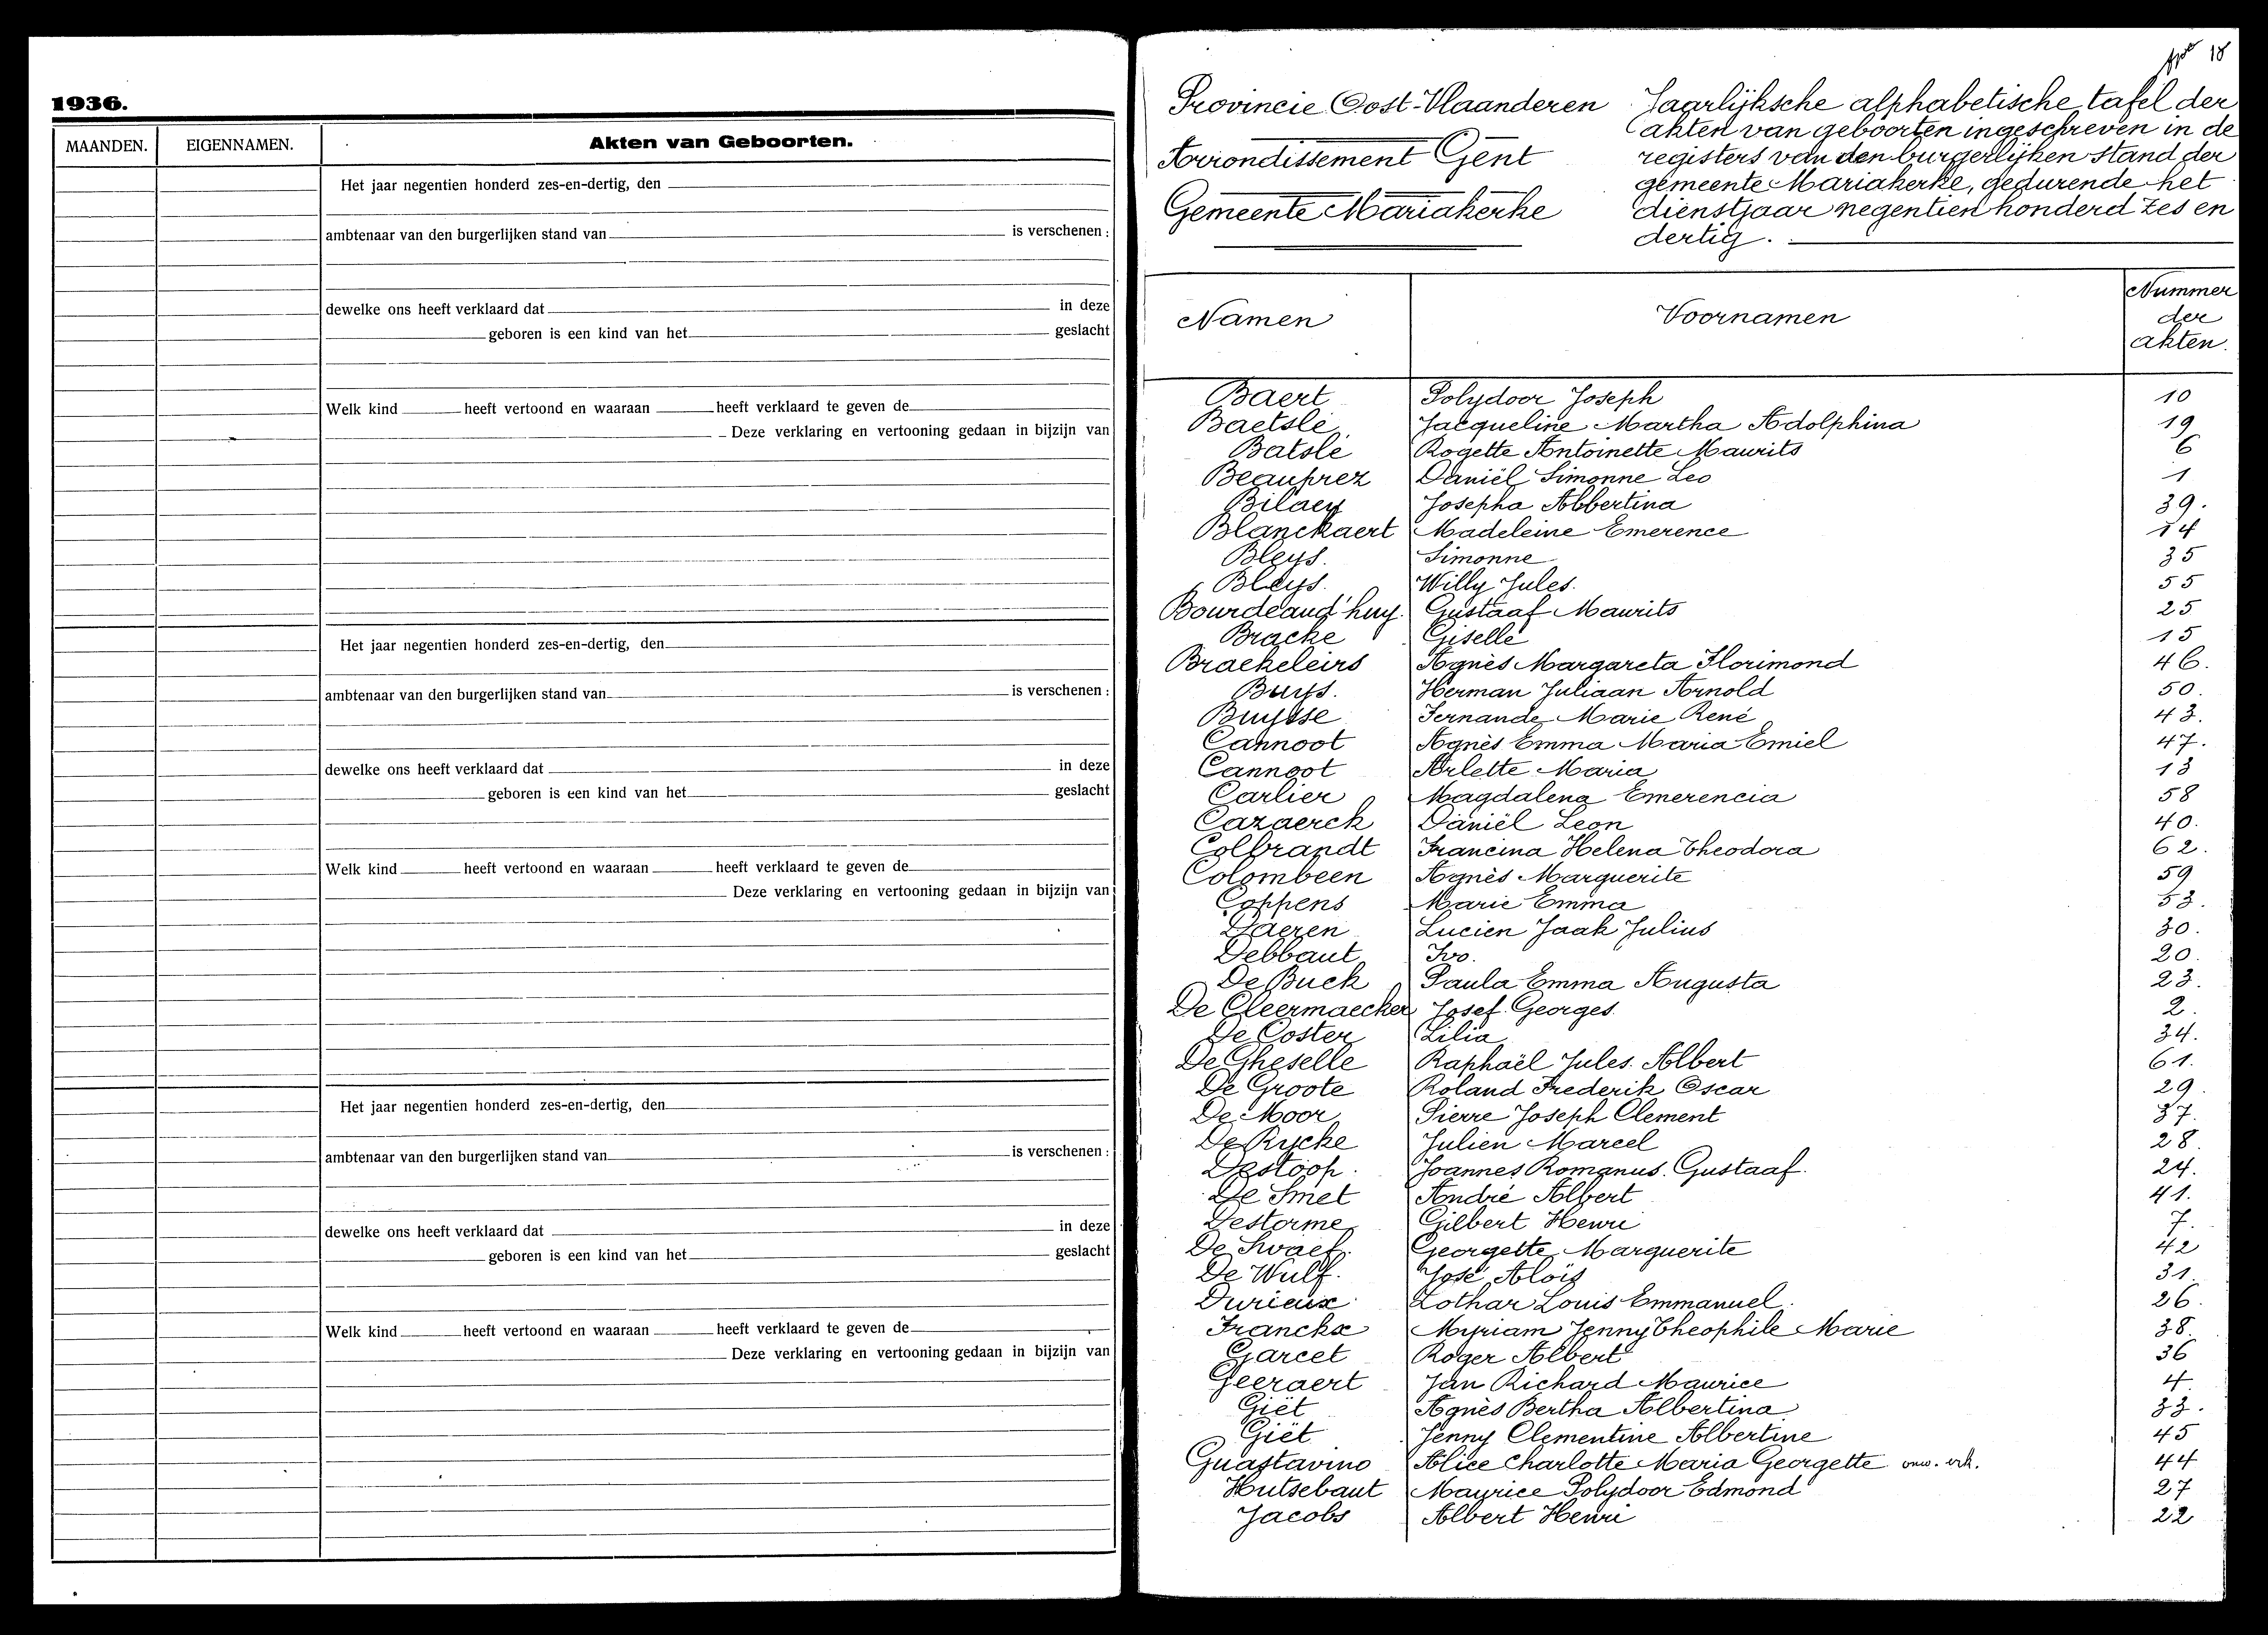 1936.
MAANDEN. EIGENNAMEN. Akten van Geboorten.
Het jaar negentien honderd zes-en-dertig, den
ambtenaar van den burgerlijken stand van is verschenen :
dewelke ons heeft verklaard dat in deze
geboren is een kind van het geslacht
Welk kind heeft vertoond en waaraan heeft verklaard te geven de
Deze verklaring en vertooning gedaan in bijzijn van
Het jaar negentien honderd zes-en-dertig, den
ambtenaar van den burgerlijken stand van is verschenen :
dewelke ons heeft verklaard dat in deze
geboren is een kind van het geslacht
Welk kind heeft vertoond en waaraan heeft verklaard te geven de
Deze verklaring en vertooning gedaan in bijzijn van
Het jaar negentien honderd zes-en-dertig, den
ambtenaar van den burgerlijken stand van is verschenen :
dewelke ons heeft verklaard dat in deze
geboren is een kind van het geslacht
Welk kind heeft vertoond en waaraan heeft verklaard te geven de
Deze verklaring en vertooning gedaan in bijzijn van
18
Provincie Oost-Vlaanderen
Arrondissement Gent
Gemeente Mariakerke
Jaarlijksche alphabetische tafel der
akten van geboorten ingeschreven in de
registers van den burgerlijken stand der
gemeente Mariakerke, gedurende het
dienstjaar negentien honderd zes en
dertig.
Namen Voornamen Nummer
der
akten.
Baert Polydoor Joseph 10
Baetslé Jacqueline Martha Adolphina 19
Batslé Rogette Antoinette Maurits 6
Beauprez Daniël Simonne Leo 1
Bilaey Josepha Albertina 39.
Blanckaert Madeleine Emerence 14
Bleys. Simonne 35
Bleys. Willy Jules. 55
Bourdeaud'huy. Gustaaf Maurits 25
Bracke Giselle 15
Braekeleirs Agnès Margareta Florimond 46.
Buys. Herman Juliaan Arnold 50.
Buysse Fernande Marie René 43.
Cannoot Agnès Emma Maria Emiel 47.
Cannoot Arlette Maria 13
Carlier Magdalena Emerencia 58
Cazaerck Daniël Leon 40.
Colbrandt Francina Helena Theodora 62.
Colombeen Agnès Marguerite 59
Coppens Marie Emma 53.
Daeren Lucien Jaak Julius 30.
Debbaut Ivo. 20.
De Buck Paula Emma Augusta 23.
De Cleermaecker Josef Georges. 2.
De Coster Lilia 34.
De Gheselle Raphaël Jules. Albert 61.
De Groote Roland Frederik Oscar 29.
De Moor Pierre Joseph Clement 37.
De Rycke Julien Marcel 28.
Destoop. Joannes Romanus. Gustaaf. 24.
De Smet André Albert 41.
Destorme Gilbert Henri 7.
De Swaef. Georgette Marguerite 42
De Wulf. José Aloïs 31.
Durieux Lothar Louis Emmanuel. 26.
Franckx Myriam Jenny Theophile Marie 38.
Garcet Roger Albert 36
Geeraert Jan Richard Maurice 4
Giët Agnès Bertha Albertina 33.
Giët Jenny Clementine Albertine 45
Guastavino Alice Charlotte Maria Georgette 44
Hutsebaut Maurice Polydoor Edmond 27
Jacobs Albert Henri 22